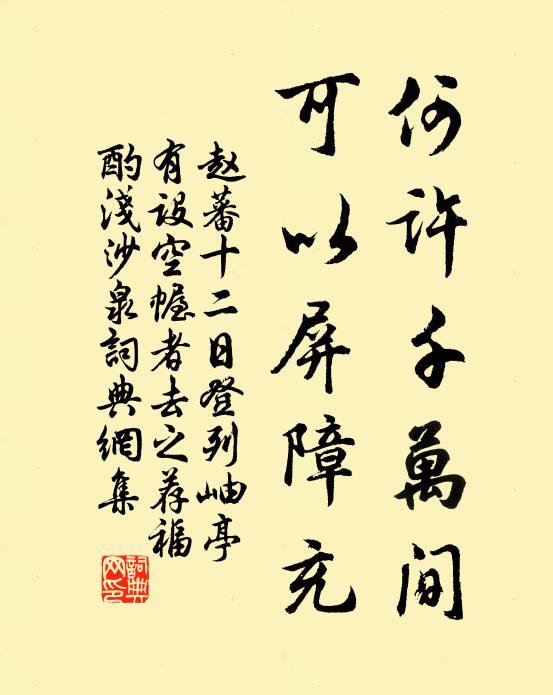 何许千萬间
可以屏障充
赵蕃十二日登列岫亭
有设空幄者去之荐福
酌淺沙泉詞典網集
詞典网印